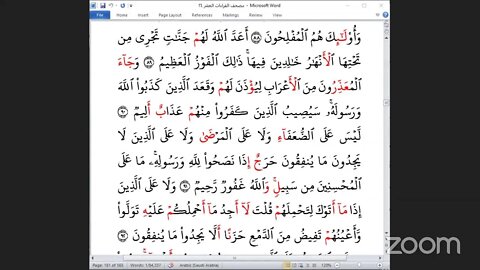 مصحف القراءات العشر 11 - Microsoft Word
File Home Insert Page Layout References Mailings Review View
وَأُوْلَـٰٓئِكَ هُمُ ٱلْمُفْلِحُونَ ٨٨ أَعَدَّ ٱللَّهُ لَهُمْ جَنَّـٰتٍ تَجْرِى مِن
تَحْتِهَا ٱلْأَنْهَـٰرُ خَـٰلِدِينَ فِيهَا ۚ ذَٰلِكَ ٱلْفَوْزُ ٱلْعَظِيمُ ٨٩ وَجَآءَ
ٱلْمُعَذِّرُونَ مِنَ ٱلْأَعْرَابِ لِيُؤْذَنَ لَهُمْ وَقَعَدَ ٱلَّذِينَ كَذَبُوا۟ ٱللَّهَ
وَرَسُولَهُۥ ۚ سَيُصِيبُ ٱلَّذِينَ كَفَرُوا۟ مِنْهُمْ عَذَابٌ أَلِيمٌ ٩٠
لَّيْسَ عَلَى ٱلضُّعَفَآءِ وَلَا عَلَى ٱلْمَرْضَىٰ وَلَا عَلَى ٱلَّذِينَ لَا
يَجِدُونَ مَا يُنفِقُونَ حَرَجٌ إِذَا نَصَحُوا۟ لِلَّهِ وَرَسُولِهِۦ ۚ مَا عَلَى
ٱلْمُحْسِنِينَ مِن سَبِيلٍ ۚ وَٱللَّهُ غَفُورٌ رَّحِيمٌ ٩١ وَلَا عَلَى ٱلَّذِينَ
إِذَا مَآ أَتَوْكَ لِتَحْمِلَهُمْ قُلْتَ لَآ أَجِدُ مَآ أَحْمِلُكُمْ عَلَيْهِ تَوَلَّوا۟
وَّأَعْيُنُهُمْ تَفِيضُ مِنَ ٱلدَّمْعِ حَزَنًا أَلَّا يَجِدُوا۟ مَا يُنفِقُونَ ٩٢
Arabic (Saudi Arabia)
120%
zoom